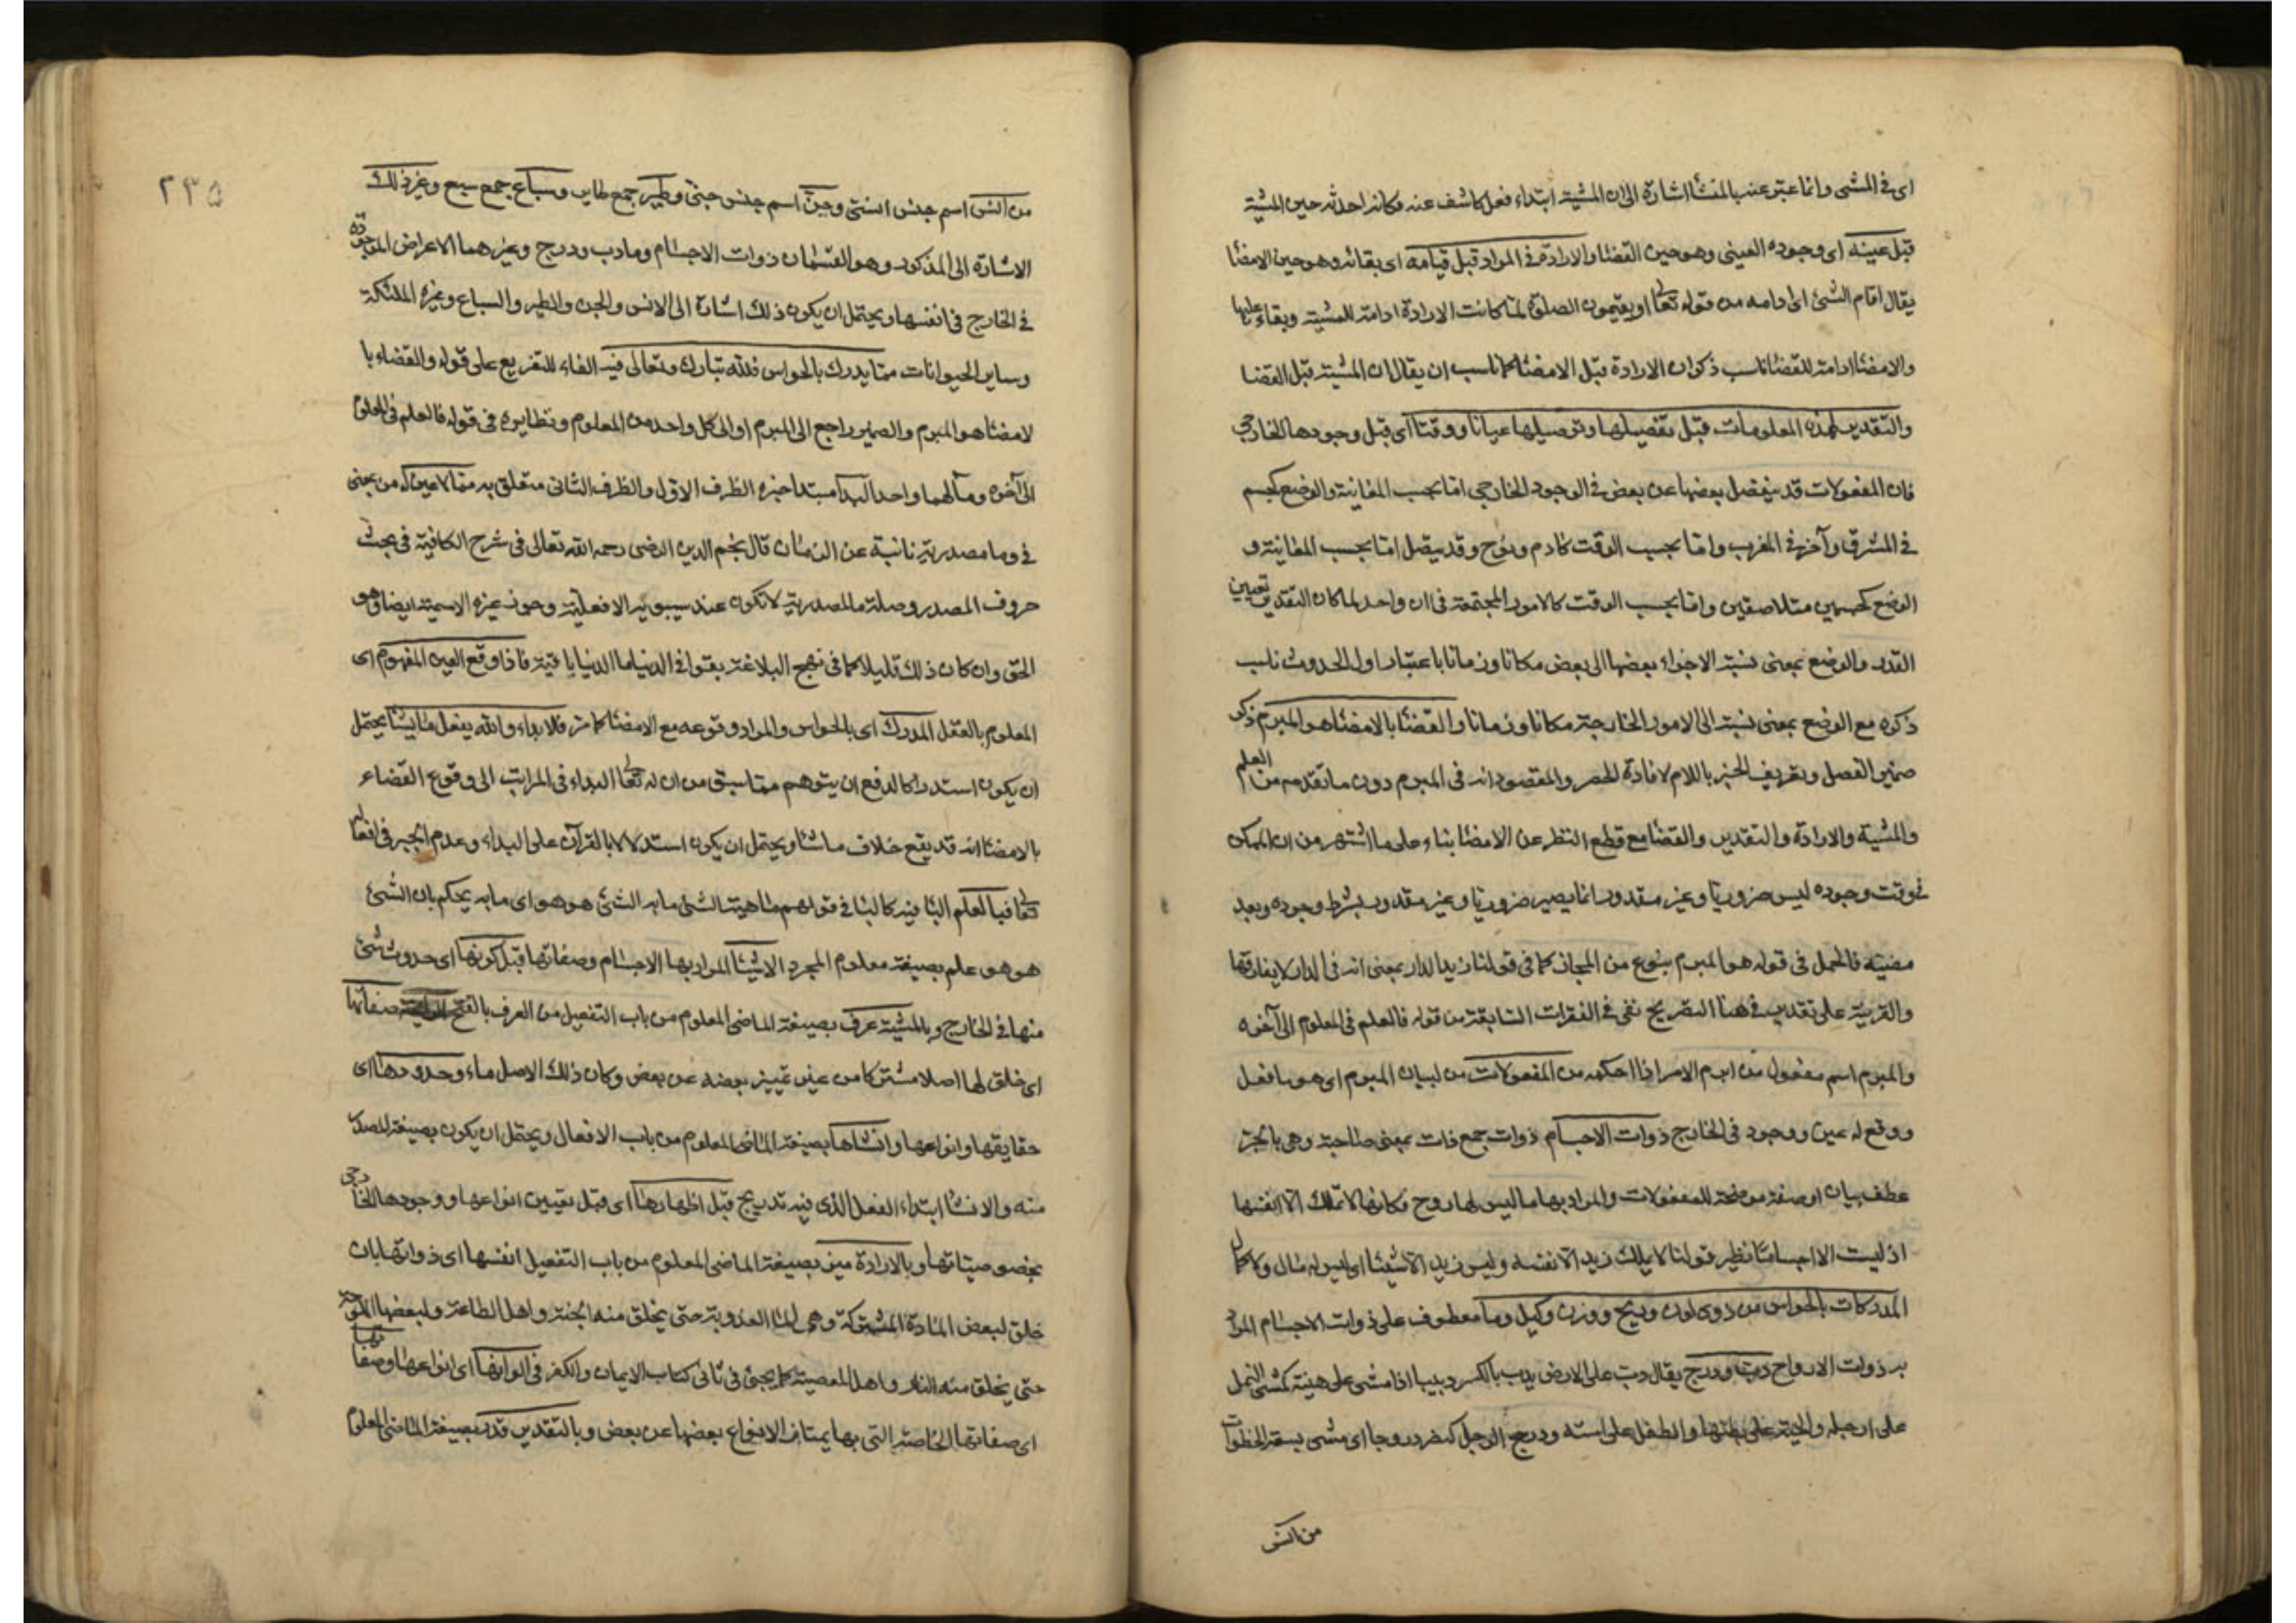 اى فى المشى وانما عبّر عنه بالمنشأ اشارة الى ان المشية ابتداء فعل كاشف عنه فكانه احدثه حين المشية
قبل عينه اى وجوده العينى وهو حين القضاء والارادة فى المراد قبل قيامه اى بقائه وهو حين الامضا
يقال اقام الشئ اى ادامه من قوله تعا ويقيمون الصلوة لما كانت الارادة ادامة للمشية وبقاء عليها
والامضا ادامة للقضا ناسب ذكر ان الارادة قبل الامضا كما ناسب ان يقال ان المشية قبل القضا
والتقدير لهذه المعلومات قبل تفصيلها وتوصيلها عيانا ووقتا اى قبل وجودها الخارجى
فان المفعولات قد ينفصل بعضها عن بعض فى الوجود الخارجى اما بحسب المعاينة والوضع كجسم
فى المشرق وآخر فى المغرب واما بحسب الوقت كآدم ونوح وقد يتصل اما بحسب المعاينة و
الوضع كجسمين متلاصقين واما بحسب الوقت كالامور المجتمعة فى ان واحد لما كان التقدير تعيين
القدر والوضع بمعنى نسبة الاجزاء بعضها الى بعض مكانا وزمانا باعتبار اول الحدوث ناسب
ذكره مع الوضع بمعنى نسبة الى الامور الخارجة مكانا وزمانا والقضا بالامضا هو المبرم ذكر
ضمير الفصل وتعريف الخبر باللام لافادة الحصر والمقصود انه فى المبرم دون ما تقدمه من العلم
والمشية والارادة والتقدير والقضا مع قطع النظر عن الامضا بناء على ما اشتهر من ان الممكن
فى وقت وجوده ليس ضروريا وغير مقدور انما يصير ضروريا وغير مقدور بشرط وجوده وبعد
مضيه فالحمل فى قوله هو المبرم بنوع من المجاز كما فى قولنا زيد الدار بمعنى انه فى الدار لا يفارقها
والقرينة على تقدير فى هنا التصريح بفى فى الفقرات السابقة من قوله فالعلم فى المعلوم الى آخره
والمبرم اسم مفعول من ابرم الامر اذا احكمه من المفعولات من لبيان المبرم اى هو ما فعل
ووقع له عين ووجود فى الخارج ذوات الاجسام ذوات جمع ذات بمعنى صاحبة وهى بالجر
عطف بيان او صفة موضحة للمفعولات والمراد بها ما ليس لها روح فكانها لا تملك الا انفسها
اذ ليست الا اجساما نظير قولنا لا يملك زيد الا نفسه وليس زيد الا شيئا اى ليس له مال ولا كمال
المدركات بالحواس من ذوى لون وريح ووزن وكيل وما معطوف على ذوات الاجسام المراد
به ذوات الارواح دب ودرج يقال دب على الارض يدب بالكسر دبيبا اذا مشى على هينة كمشى النمل
على ارجله والحية على بطنها والطفل على استه ودرج الرجل كنصر دروجا اى مشى بسعة الخطوات
من انس
٢٣٥
من انس اسم جنس انسى وجن اسم جنس جنى وطير جمع طاير وسباع جمع سبع وغير ذلك
الاشارة الى المذكور وهو القسمان ذوات الاجسام وما دب ودرج وغيرهما الاعراض الموجودة
فى الخارج فى انفسها ويحتمل ان يكون ذلك اشارة الى الانس والجن والطير والسباع وغيره الملئكة
وساير الحيوانات مما يدرك بالحواس فلله تبارك وتعالى فيه الفاء للتفريع على قوله والقضاء با
لامضا هو المبرم والضمير راجع الى المبرم او الى كل واحد من المعلوم ونظايره فى قوله فالعلم فى المعلوم
الى آخره ومآلهما واحد البدا مبتدا خبره الظرف الاول والظرف الثانى متعلق به مما لا عين له من بمعنى
فى وما مصدرية نائبة عن الزمان قال نجم الدين الرضى رحمه الله تعالى فى شرح الكافية فى بحث
حروف المصدر وصلة ما المصدرية لا تكون عند سيبويه الا فعلية وجوز غيره الاسمية ايضا وهو
الحق وان كان ذلك قليلا كما فى نهج البلاغة بقوا فى الدنيا ما الدنيا باقية فاذا وقع العين المفهوم اى
المعلوم بالعقل المدرك اى بالحواس والمراد وقوعه مع الامضا كما مر فلا بداء والله يفعل ما يشا يحتمل
ان يكون استدراكا لدفع ان يتوهم مما سبق من ان له تعا البداء فى المراتب الى وقوع القضاء
بالامضا انه قد يقع خلاف ما شا ويحتمل ان يكون استدلالا بالقرآن على البداء وعدم الجبر فى افعاله
تعا فبالعلم البا فيه كالبا فى قولهم ماهية الشئ ما به الشئ هو هو اى ما به يحكم بان الشئ
هو هو علم بصيغة معلوم المجرد الاشيا المراد بها الاجسام وصفاتها قبل كونها اى حدوث شئ
منها فى الخارج وبالمشية عرف بصيغة الماضى المعلوم من باب التفعيل من العرف بالفتح صفاتها
اى خلق لها اصلا مشتركا من غير تمييز بعضه عن بعض وكان ذلك الاصل ماء وحدودها اى
حقايقها وانواعها وانشاها بصيغة الماضى المعلوم من باب الافعال ويحتمل ان يكون بصيغة المصدر
منه والانشا ابتداء الفعل الذى فيه تدريج قبل اظهارها اى قبل تعيين انواعها ووجودها الخارجى
بخصوصياتها وبالارادة ميز بصيغة الماضى المعلوم من باب التفعيل انفسها اى ذواتها بان
خلق لبعض المادة المشتركة وهى الما العذوبة حتى يخلق منه الجنة واهل الطاعة ولبعضها الملوحة
حتى يخلق منه النار واهل المعصية كما يجئ فى ثانى كتاب الايمان والكفر فى الوانها اى انواعها وصفاتها
اى صفاتها الخاصة التى بها يمتاز الانواع بعضها عن بعض وبالتقدير قدر بصيغة الماضى المعلوم